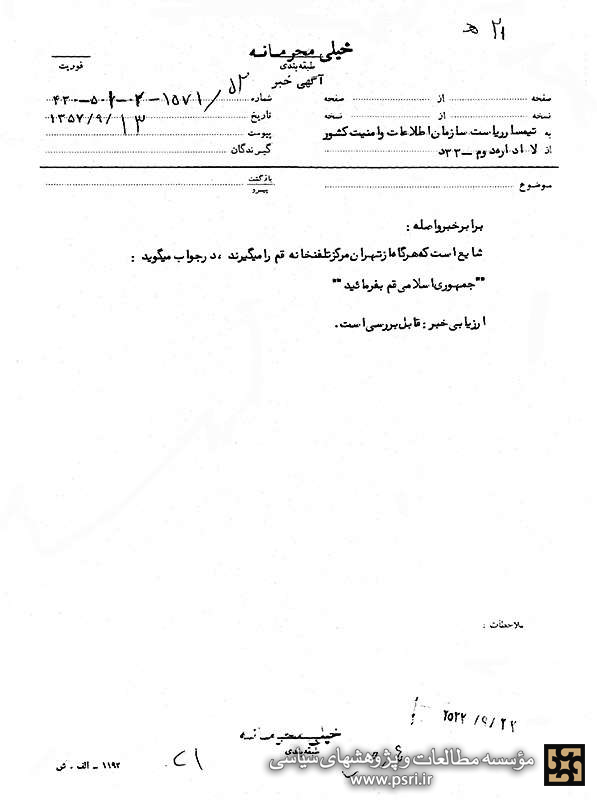 ۲۱ ﻫ
خیلی محرمانه
طبقه‌بندی
فوریت
آگهی خبر
صفحه از صفحه
شماره ۱۵۷۱/۵۲
نسخه از نسخه
تاریخ ۱۳۵۷/۹/۱۳
به تیمسار ریاست سازمان اطلاعات و امنیت کشور
پیوست
از اداره دوم -
گیرندگان
موضوع
بازگشت
پیرو
برابر خبر واصله :
شایع است که هرگاه از تهران مرکز تلفنخانه قم را میگیرند ، در جواب میگوید :
"جمهوری اسلامی قم بفرمائید "
ارزیابی خبر : قابل بررسی است .
ملاحظات :
۹/۲۲
خیلی محرمانه
طبقه‌بندی
۱۱۹۲ - الف . ش
مؤسسه مطالعات و پژوهشهای سیاسی
www.psri.ir